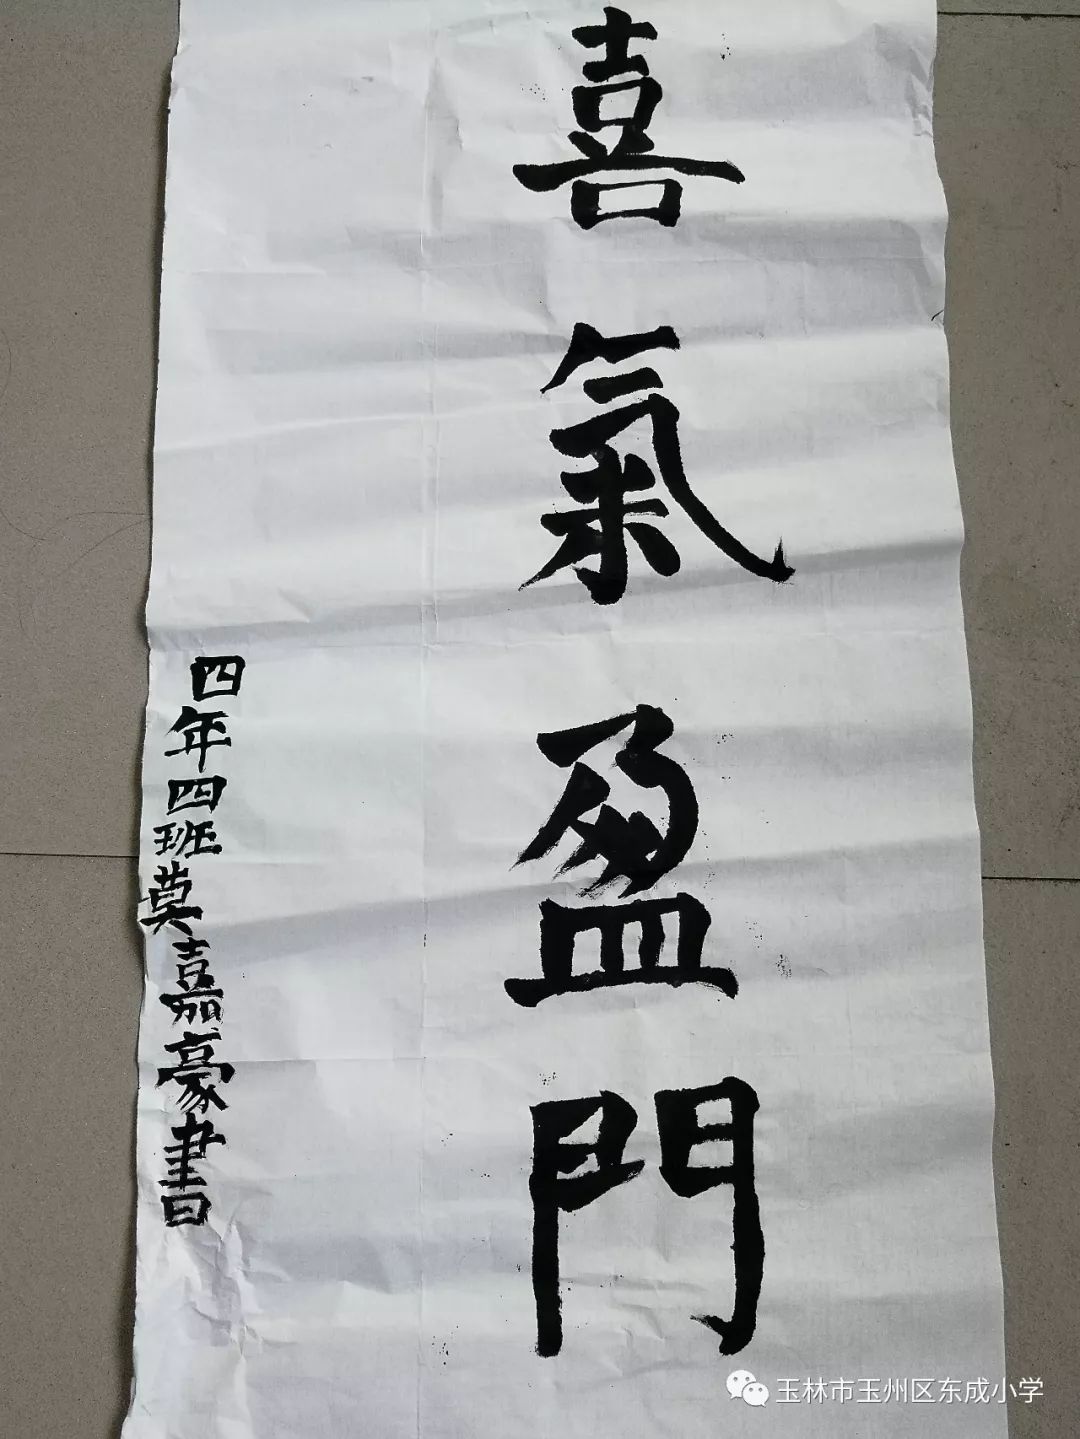 喜氣盈門
四年四班莫嘉豪書
玉林市玉州区东成小学